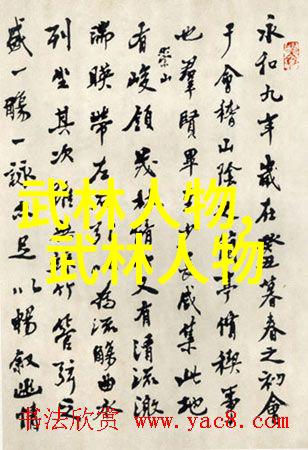 永和九年歲在癸丑暮春之初會
于會稽山陰亭脩禊事
也羣賢畢少長咸集此地
有崇山峻領茂脩又有清流激
湍暎帶左右引以為流觴曲水
列坐其次竹管弦之
盛一觴一詠足以暢敘幽情
武林人物,
武林人物
书法欣赏 www.yac8.com